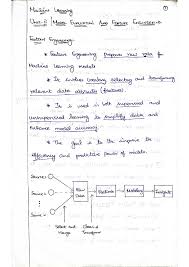 Machine Learning
①
Unit-2 Model Evaluation And Feature Engineering
Feature Engineering:
* Feature Engineering prepares raw data for
Machine Learning models
* It involves creating, selecting and transforming
relevant data attributes (features)
* It is used in both supervised and
unsupervised learning to simplify data and
enhance model accuracy
* The goal is to improve the
efficiency and predictive power of models.
Source 1
Source 2
Source n
Raw
Data
Features
Modeling
Insights
Select and
Merge
Clean and
Transform